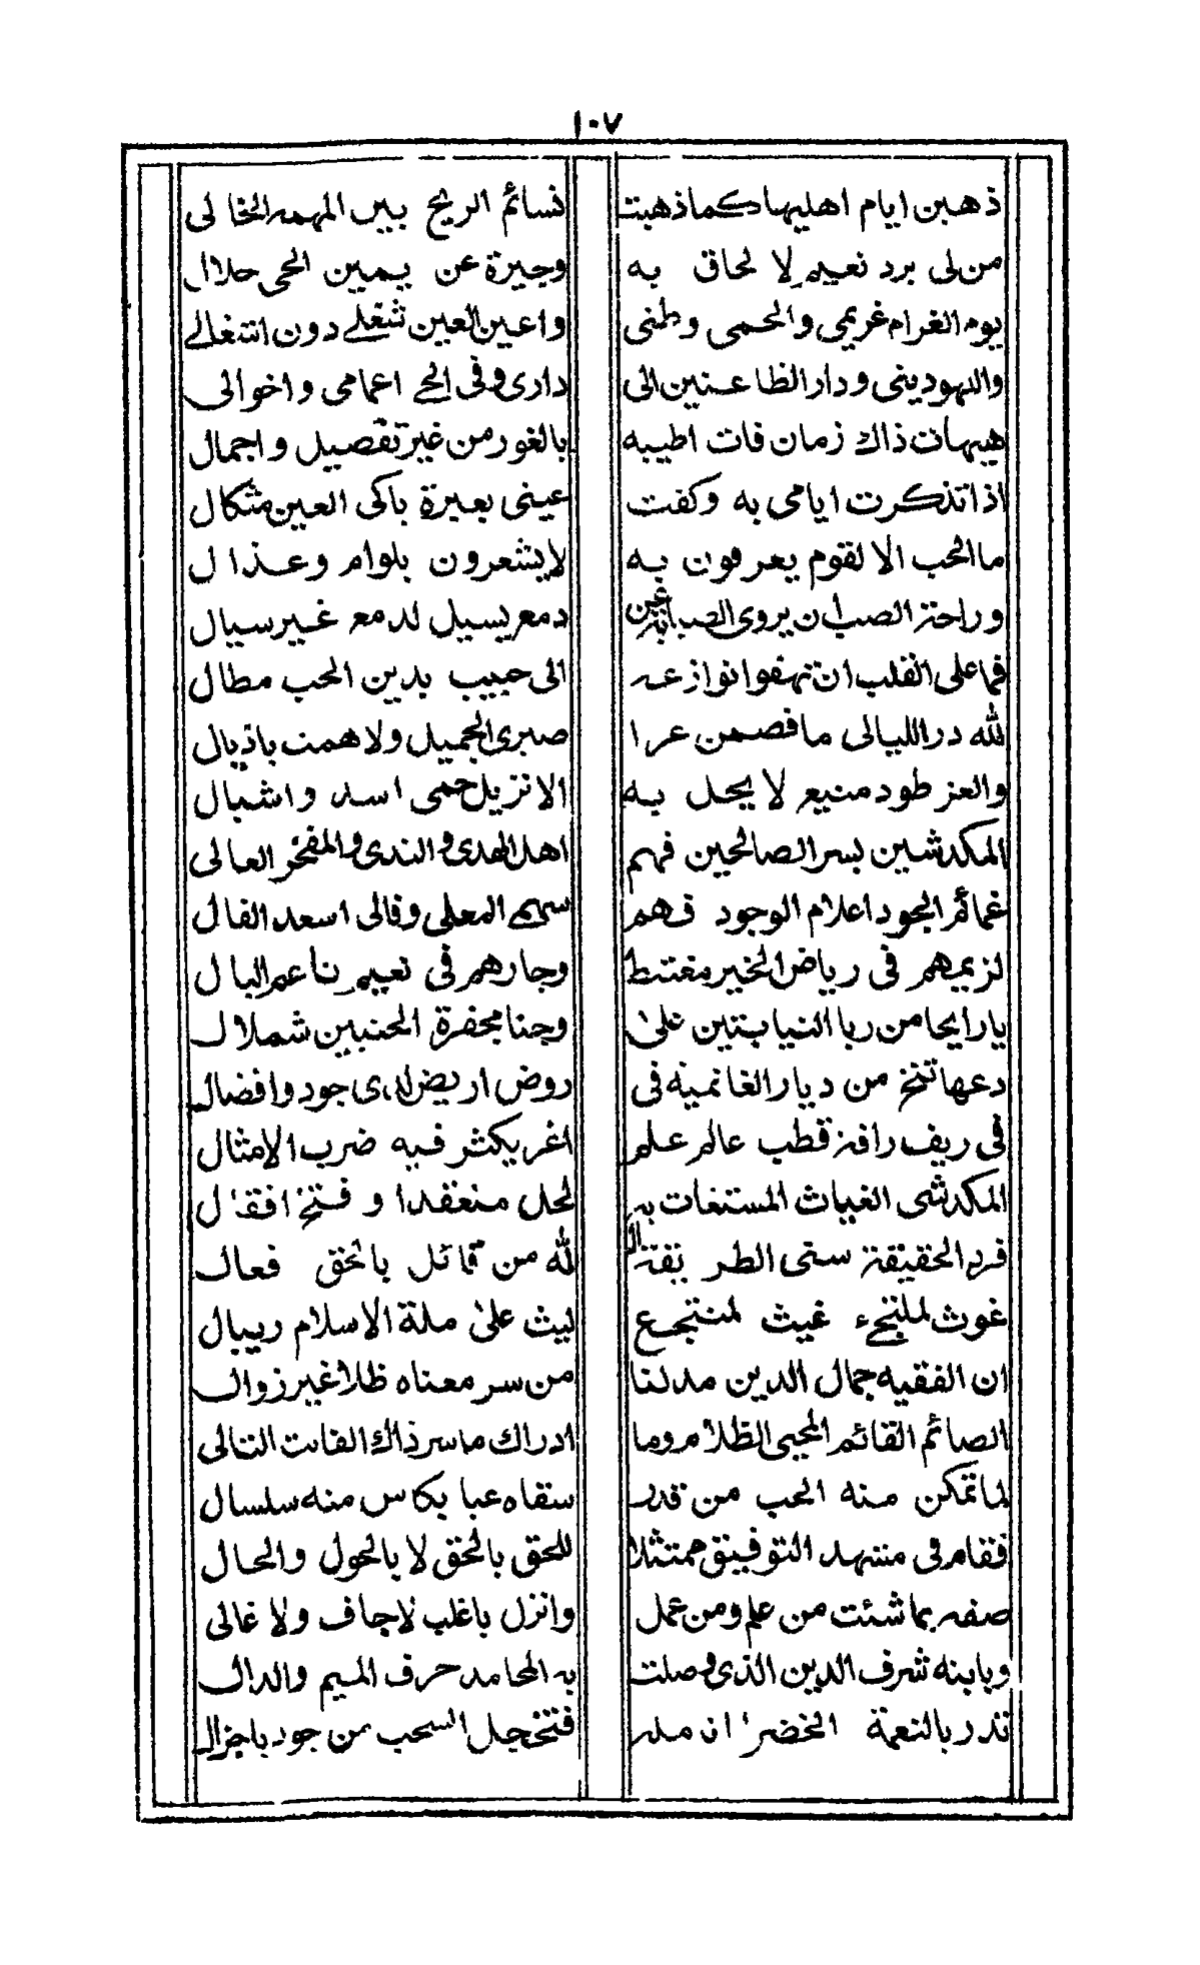 ١٠٧
ذهبن ايام اهليها كما ذهبت نسائم الريح بين المهمه الخالى
من لى برد نعيم لا لحاق به وجيرة عن يمين الحى حلال
يوم الغرام غريمى والحمى وطنى واعين العين شغلے دون اشغالے
والهو دينى ودار الظاعنين الى دارى وفى الحے اعمامى واخوالى
هيهات ذاك زمان فات اطيبه بالغور من غير تفصيل واجمال
اذا تذكرت ايامى به وكفت عينى بعبرة باكى العين مثكال
ما الحب الا لقوم يعرفون به لا يشعرون بلوام وعذال
وراحة الصب ان يروى الصبابة عن دمع يسيل لدمع غير سيال
فما على القلب ان تهفوا نوازعه الى حبيب بدين المحب مطال
لله در الليالى ما فصمن عرا صبرى الجميل ولا همت باذيال
والعز طود منيع لا يحل به الا نزيل حمى اسد واشبال
المكدشين بسر الصالحين فهم اهل الهدى والندى والمفخر العالى
غمائم الجود اعلام الوجود فهم سهمى المعلى وفالى اسعد الفال
نزيلهم فى رياض الخير مغتبط وجارهم فى نعيم ناعم البال
يا رايحا من ربا النيابتين على وجنا مجفرة الجنبين شملال
دعها تنخ من ديار الغانمية فى روض اريض لدى جود وافضال
فى ريف رافة قطب عالم علم اغر يكثر فيه ضرب الامثال
المكدشى الغياث المستغاث به لحل منعقد او فتح اقفال
فرد الحقيقة ستى الطريقة لله من قائل بالحق فعال
غوث لملتجىء غيث لمنتجع ليث على ملة الاسلام ريبال
ان الفقيه جمال الدين مد لنا من سر معناه ظلا غير زوال
الصائم القائم المحيى الظلام وما ادراك ما سر ذاك القانت التالى
لما تمكن منه الحب من قدر سقاه عبا بكاس منه سلسال
فقام فى مشهد التوفيق ممتثلا للحق بالحق لا بالحول والحال
صفه بما شئت من علم ومن عمل وانزل باغلب لا جاف ولا غالى
وبابنه شرف الدين الذى وصلت به المحامد حرف الميم والدال
ندر بالنعمة الخضرا ان مدر فتخجل السحب من جود باجزال